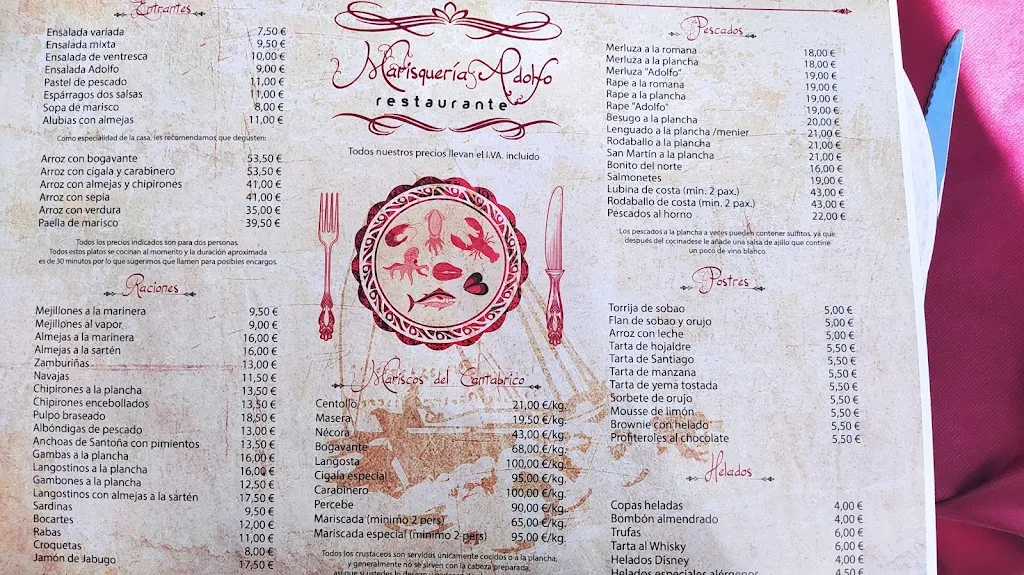 Entrantes
Ensalada variada 7,50 €
Ensalada mixta 9,50 €
Ensalada de ventresca 10,00 €
Ensalada Adolfo 9,00 €
Pastel de pescado 11,00 €
Espárragos dos salsas 11,00 €
Sopa de marisco 8,00 €
Alubias con almejas 11,00 €
Como especialidad de la casa, les recomendamos que degusten:
Arroz con bogavante 53,50 €
Arroz con cigala y carabinero 53,50 €
Arroz con almejas y chipirones 41,00 €
Arroz con sepia 41,00 €
Arroz con verdura 35,00 €
Paella de marisco 39,50 €
Todos los precios indicados son para dos personas.
Todos estos platos se cocinan al momento y la duración aproximada
es de 30 minutos por lo que sugerimos que llamen para posibles encargos.
Raciones
Mejillones a la marinera 9,50 €
Mejillones al vapor 9,00 €
Almejas a la marinera 16,00 €
Almejas a la sartén 16,00 €
Zamburiñas 13,00 €
Navajas 11,50 €
Chipirones a la plancha 13,50 €
Chipirones encebollados 13,50 €
Pulpo braseado 18,50 €
Albóndigas de pescado 13,00 €
Anchoas de Santoña con pimientos 13,50 €
Gambas a la plancha 16,00 €
Langostinos a la plancha 16,00 €
Gambones a la plancha 12,50 €
Langostinos con almejas a la sartén 17,50 €
Sardinas 9,50 €
Bocartes 12,00 €
Rabas 11,00 €
Croquetas 8,00 €
Jamón de Jabugo 17,50 €
Marisquería Adolfo
restaurante
Todos nuestros precios llevan el I.VA. incluido
Mariscos del Cantábrico
Centollo 21,00 €/kg.
Masera 19,50 €/kg.
Nécora 43,00 €/kg.
Bogavante 68,00 €/kg.
Langosta 100,00 €/kg.
Cigala especial 95,00 €/kg.
Carabinero 100,00 €/kg.
Percebe 90,00 €/kg.
Mariscada (mínimo 2 pers) 65,00 €/kg.
Mariscada especial (mínimo 2 pers) 95,00 €/kg.
Todos los crustaceos son servidos únicamente cocidos o a la plancha,
y generalmente no se sirven con la cabeza preparada,
así que si ustedes lo desean
Pescados
Merluza a la romana 18,00 €
Merluza a la plancha 18,00 €
Merluza "Adolfo" 19,00 €
Rape a la romana 19,00 €
Rape a la plancha 19,00 €
Rape "Adolfo" 19,00 €
Besugo a la plancha 20,00 €
Lenguado a la plancha /menier 21,00 €
Rodaballo a la plancha 21,00 €
San Martín a la plancha 21,00 €
Bonito del norte 16,00 €
Salmonetes 19,00 €
Lubina de costa (min. 2 pax.) 43,00 €
Rodaballo de costa (min. 2 pax.) 43,00 €
Pescados al horno 22,00 €
Los pescados a la plancha a veces pueden contener sulfitos, ya que
después del cocinadese le añade una salsa de ajillo que contine
un poco de vino blanco.
Postres
Torrija de sobao 5,00 €
Flan de sobao y orujo 5,00 €
Arroz con leche 5,00 €
Tarta de hojaldre 5,50 €
Tarta de Santiago 5,50 €
Tarta de manzana 5,50 €
Tarta de yema tostada 5,50 €
Sorbete de orujo 5,50 €
Mousse de limón 5,50 €
Brownie con helado 5,50 €
Profiteroles al chocolate 5,50 €
Helados
Copas heladas 4,00 €
Bombón almendrado 4,00 €
Trufas 6,00 €
Tarta al Whisky 6,00 €
Helados Disney 4,00 €
Helados especiales alérgenos 4,50 €